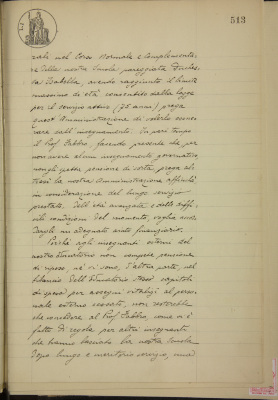 513
rale nel Corso Normale e Complementa-
re della nostra Scuola pareggiata Duches-
sa Isabella, avendo raggiunto il limite
massimo di età consentito dalla legge
per il servizio attivo (75 anni) prega
quest'Amministrazione di volerlo esone-
rare dall'insegnamento. In pari tempo
il Prof. Fabbro, facendo presente che per
non avere alcun insegnamento governativo
non gli spetta pensione di sorta prega al-
tresì la nostra Amministrazione affinchè
in considerazione del lungo servizio
prestato, dell'età avanzata e delle diffi-
cili condizioni del momento, voglia accor-
dargli un adeguato aiuto finanziario.
Poichè agli insegnanti esterni del
nostro Educatorio non compete pensione
di riposo, nè vi sono, d'altra parte, nel
bilancio dell'Educatorio stesso capitoli
di spesa per assegni vitalizi al perso-
nale esterno cessato, non resterebbe
che concedere al Prof. Fabbro, come si è
fatto di regola per altri insegnanti
che hanno lasciato la nostra Scuola
dopo lungo e meritorio servizio, una